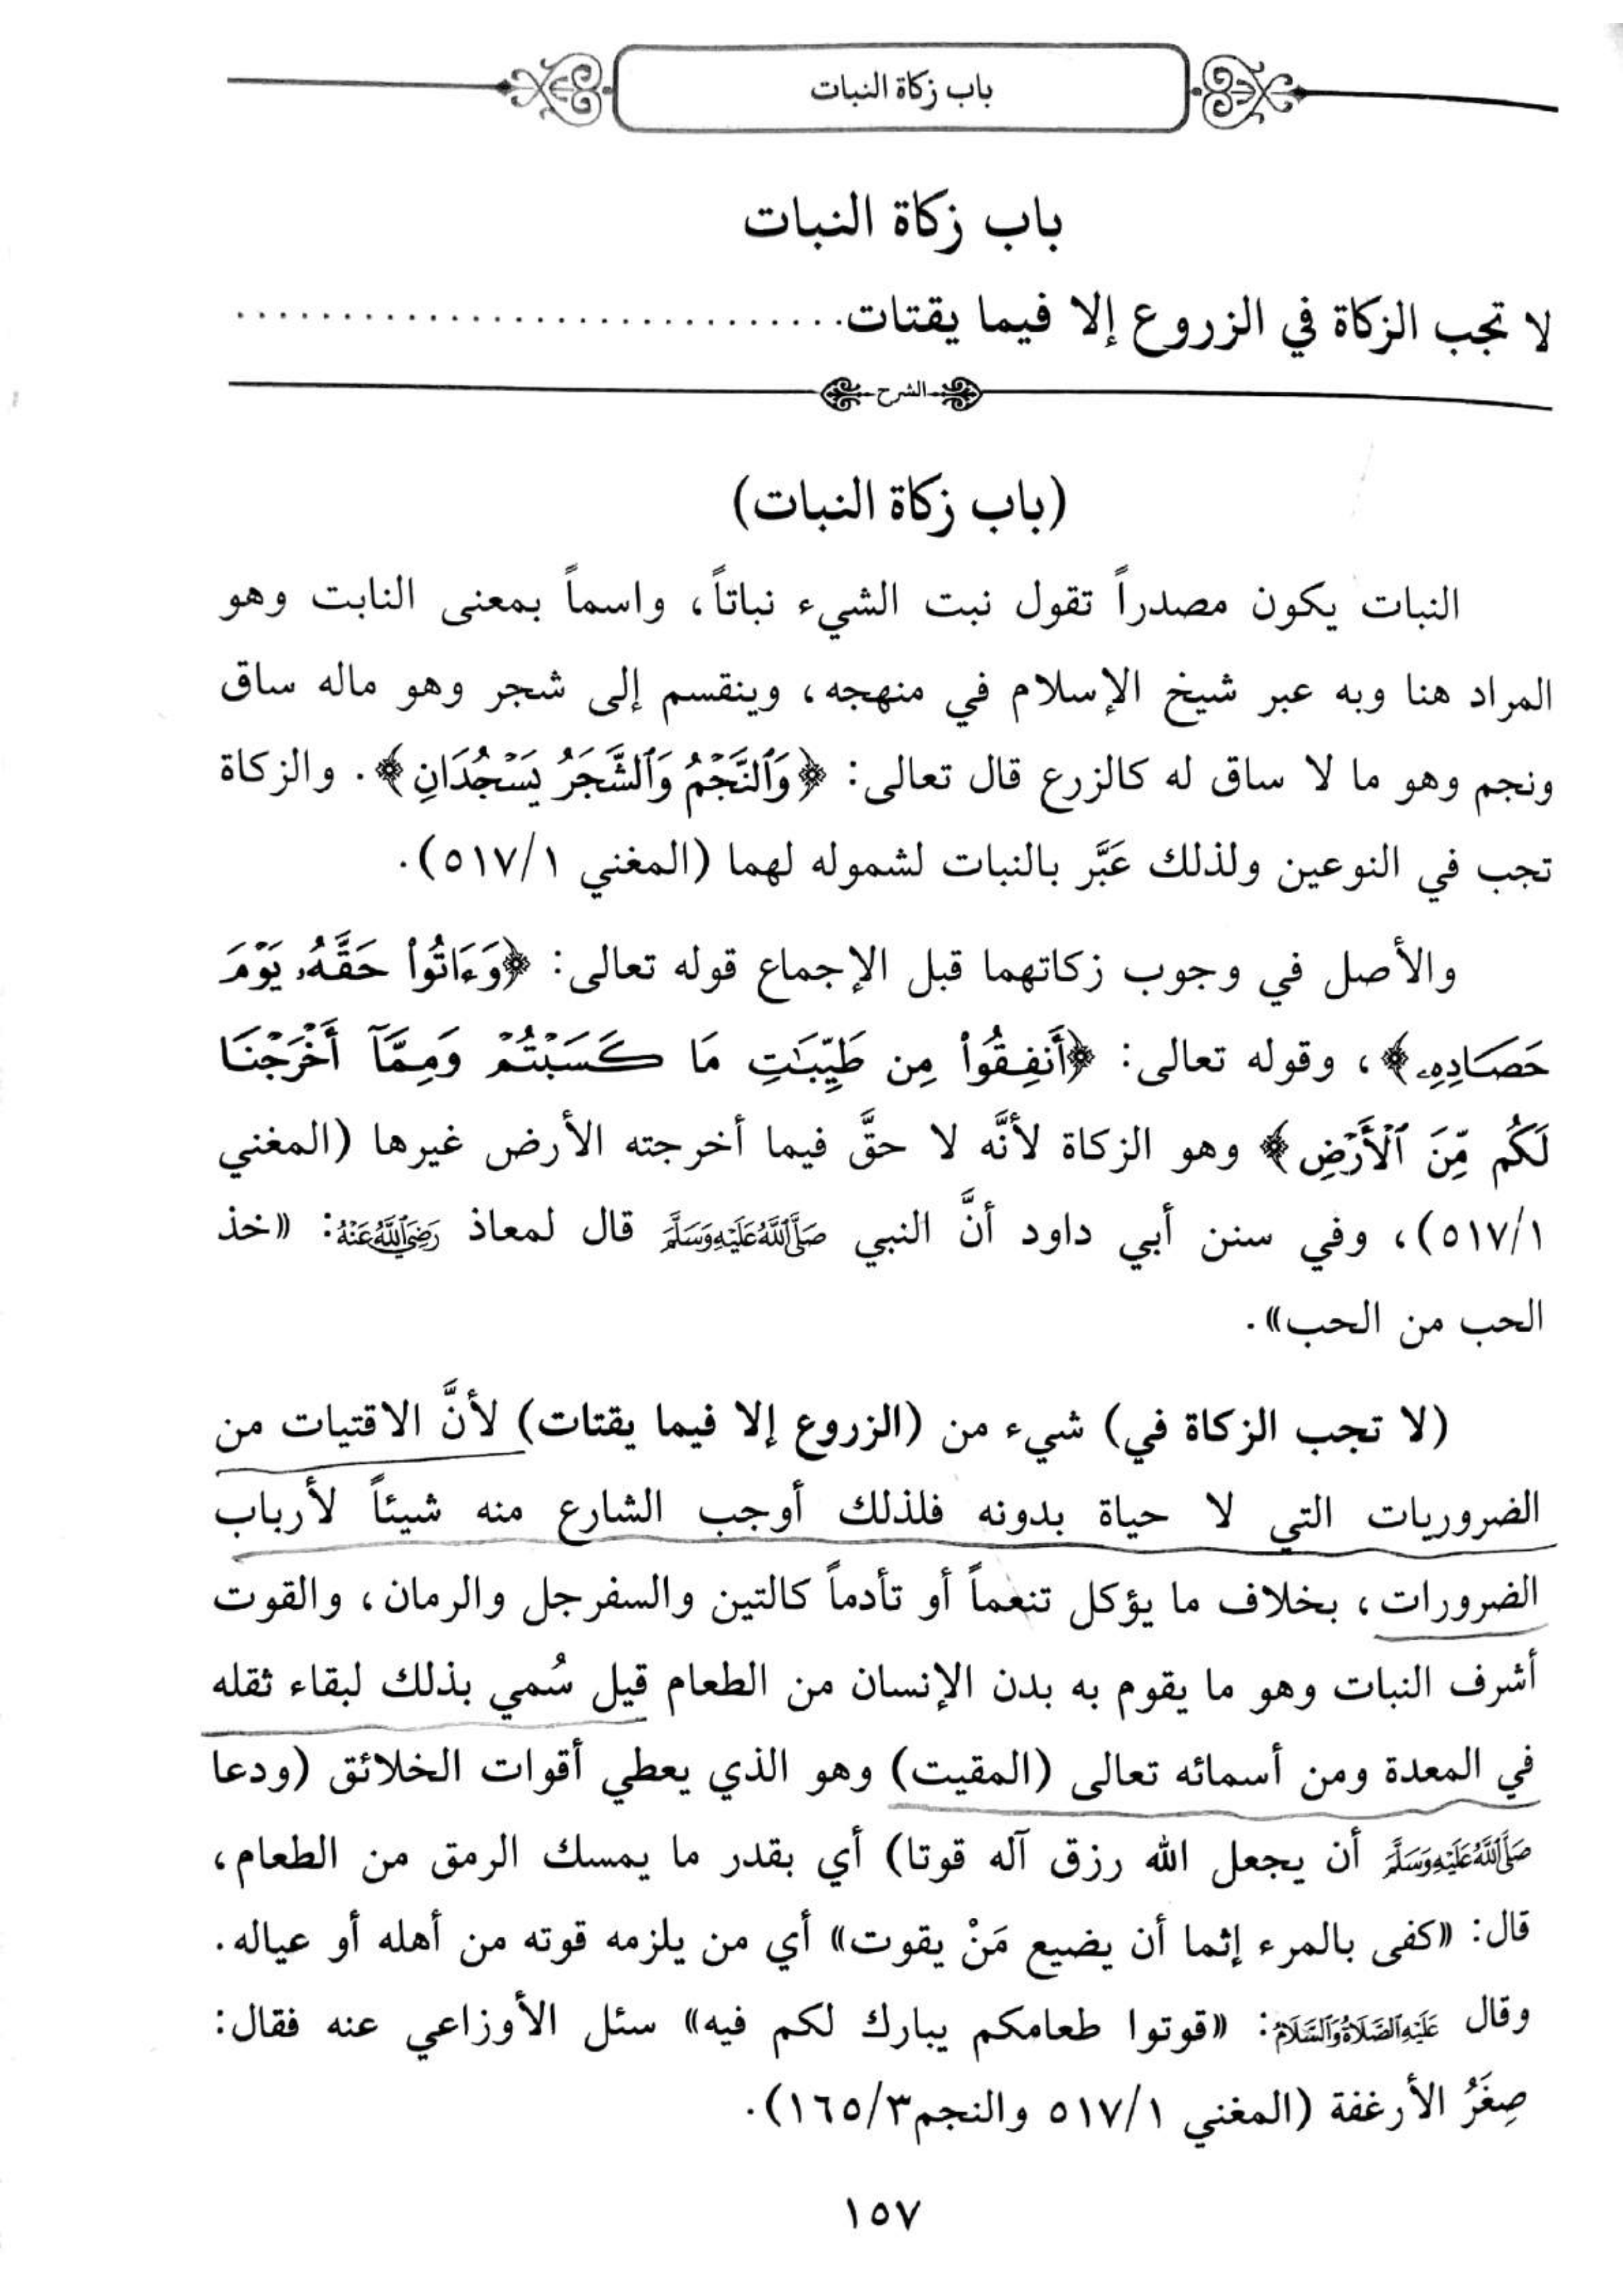 باب زكاة النبات
باب زكاة النبات
لا تجب الزكاة في الزروع إلا فيما يقتات.............................
الشرح
(باب زكاة النبات)
النبات يكون مصدراً تقول نبت الشيء نباتاً، واسماً بمعنى النابت وهو
المراد هنا وبه عبر شيخ الإسلام في منهجه، وينقسم إلى شجر وهو ماله ساق
ونجم وهو ما لا ساق له كالزرع قال تعالى: ﴿وَٱلنَّجْمُ وَٱلشَّجَرُ يَسْجُدَانِ﴾. والزكاة
تجب في النوعين ولذلك عَبَّر بالنبات لشموله لهما (المغني ٥١٧/١).
والأصل في وجوب زكاتهما قبل الإجماع قوله تعالى: ﴿وَءَاتُوا۟ حَقَّهُۥ يَوْمَ
حَصَادِهِۦ﴾، وقوله تعالى: ﴿أَنفِقُوا۟ مِن طَيِّبَـٰتِ مَا كَسَبْتُمْ وَمِمَّآ أَخْرَجْنَا
لَكُم مِّنَ ٱلْأَرْضِ﴾ وهو الزكاة لأنَّه لا حقَّ فيما أخرجته الأرض غيرها (المغني
٥١٧/١)، وفي سنن أبي داود أنَّ النبي صَلَّى ٱللَّهُ عَلَيْهِ وَسَلَّمَ قال لمعاذ رَضِيَ ٱللَّهُ عَنْهُ: «خذ
الحب من الحب».
(لا تجب الزكاة في) شيء من (الزروع إلا فيما يقتات) لأنَّ الاقتيات من
الضروريات التي لا حياة بدونه فلذلك أوجب الشارع منه شيئاً لأرباب
الضرورات، بخلاف ما يؤكل تنعماً أو تأدماً كالتين والسفرجل والرمان، والقوت
أشرف النبات وهو ما يقوم به بدن الإنسان من الطعام قيل سُمي بذلك لبقاء ثقله
في المعدة ومن أسمائه تعالى (المقيت) وهو الذي يعطي أقوات الخلائق (ودعا
صَلَّى ٱللَّهُ عَلَيْهِ وَسَلَّمَ أن يجعل الله رزق آله قوتا) أي بقدر ما يمسك الرمق من الطعام،
قال: «كفى بالمرء إثما أن يضيع مَنْ يقوت» أي من يلزمه قوته من أهله أو عياله.
وقال عَلَيْهِ ٱلصَّلَاةُ وَٱلسَّلَامُ: «قوتوا طعامكم يبارك لكم فيه» سئل الأوزاعي عنه فقال:
صِغَرُ الأرغفة (المغني ٥١٧/١ والنجم١٦٥/٣).
١٥٧